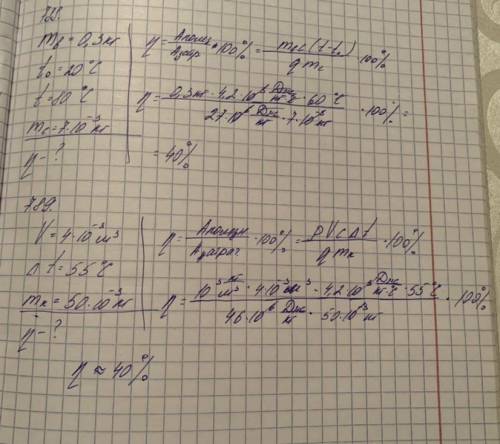 788.
m_в = 0,3 кг
t₀ = 20°C
t = 80°C
m_с = 7·10⁻³ кг
η - ?
η = Aполез/Aзатр · 100% = m_в c (t - t₀)/q m_с · 100%
η = 0,3 кг · 4,2·10³ Дж/кг·°C · 60°C / 27·10⁶ Дж/кг · 7·10⁻³ кг · 100% =
= 40%
789.
V = 4·10⁻³ м³
Δt = 55°C
m_к = 50·10⁻³ кг
η - ?
η = Aполезн/Aзатрач · 100% = ρVcΔt/q m_к · 100%
η = 10³ кг/м³ · 4·10⁻³ м³ · 4,2·10³ Дж/кг·°C · 55°C / 46·10⁶ Дж/кг · 50·10⁻³ кг · 100%
η ≈ 40%